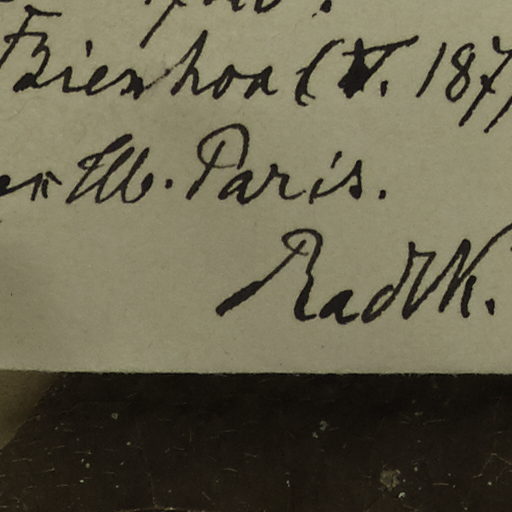 Bienhoa (V. 187
ex Hb. Paris.
Radlk.